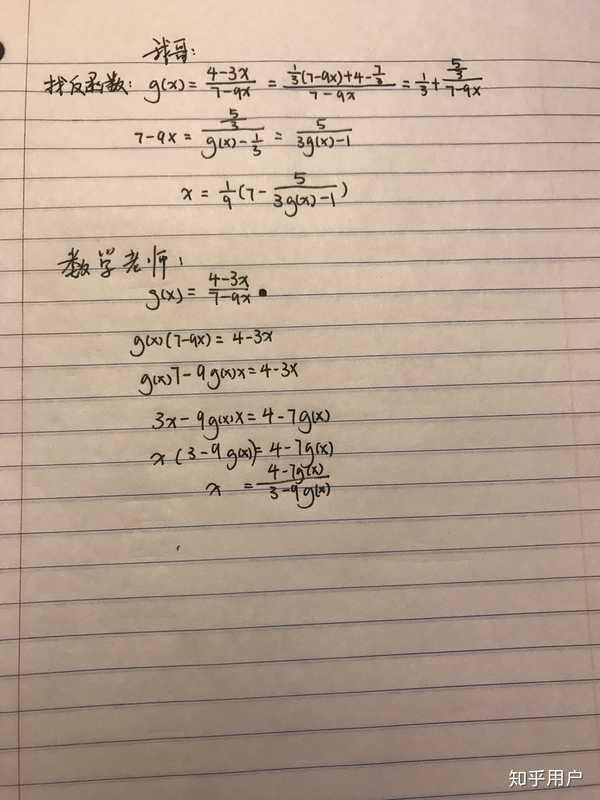 我哥:
找反函数: g(x) = \frac{4-3x}{7-9x} = \frac{\frac{1}{3}(7-9x)+4-\frac{7}{3}}{7-9x} = \frac{1}{3} + \frac{\frac{5}{3}}{7-9x}
7-9x = \frac{\frac{5}{3}}{g(x)-\frac{1}{3}} = \frac{5}{3g(x)-1}
x = \frac{1}{9}(7-\frac{5}{3g(x)-1})
数学老师:
g(x) = \frac{4-3x}{7-9x}
g(x)(7-9x) = 4-3x
g(x)7-9g(x)x = 4-3x
3x-9g(x)x = 4-7g(x)
x(3-9g(x)) = 4-7g(x)
x = \frac{4-7g(x)}{3-9g(x)}
知乎用户